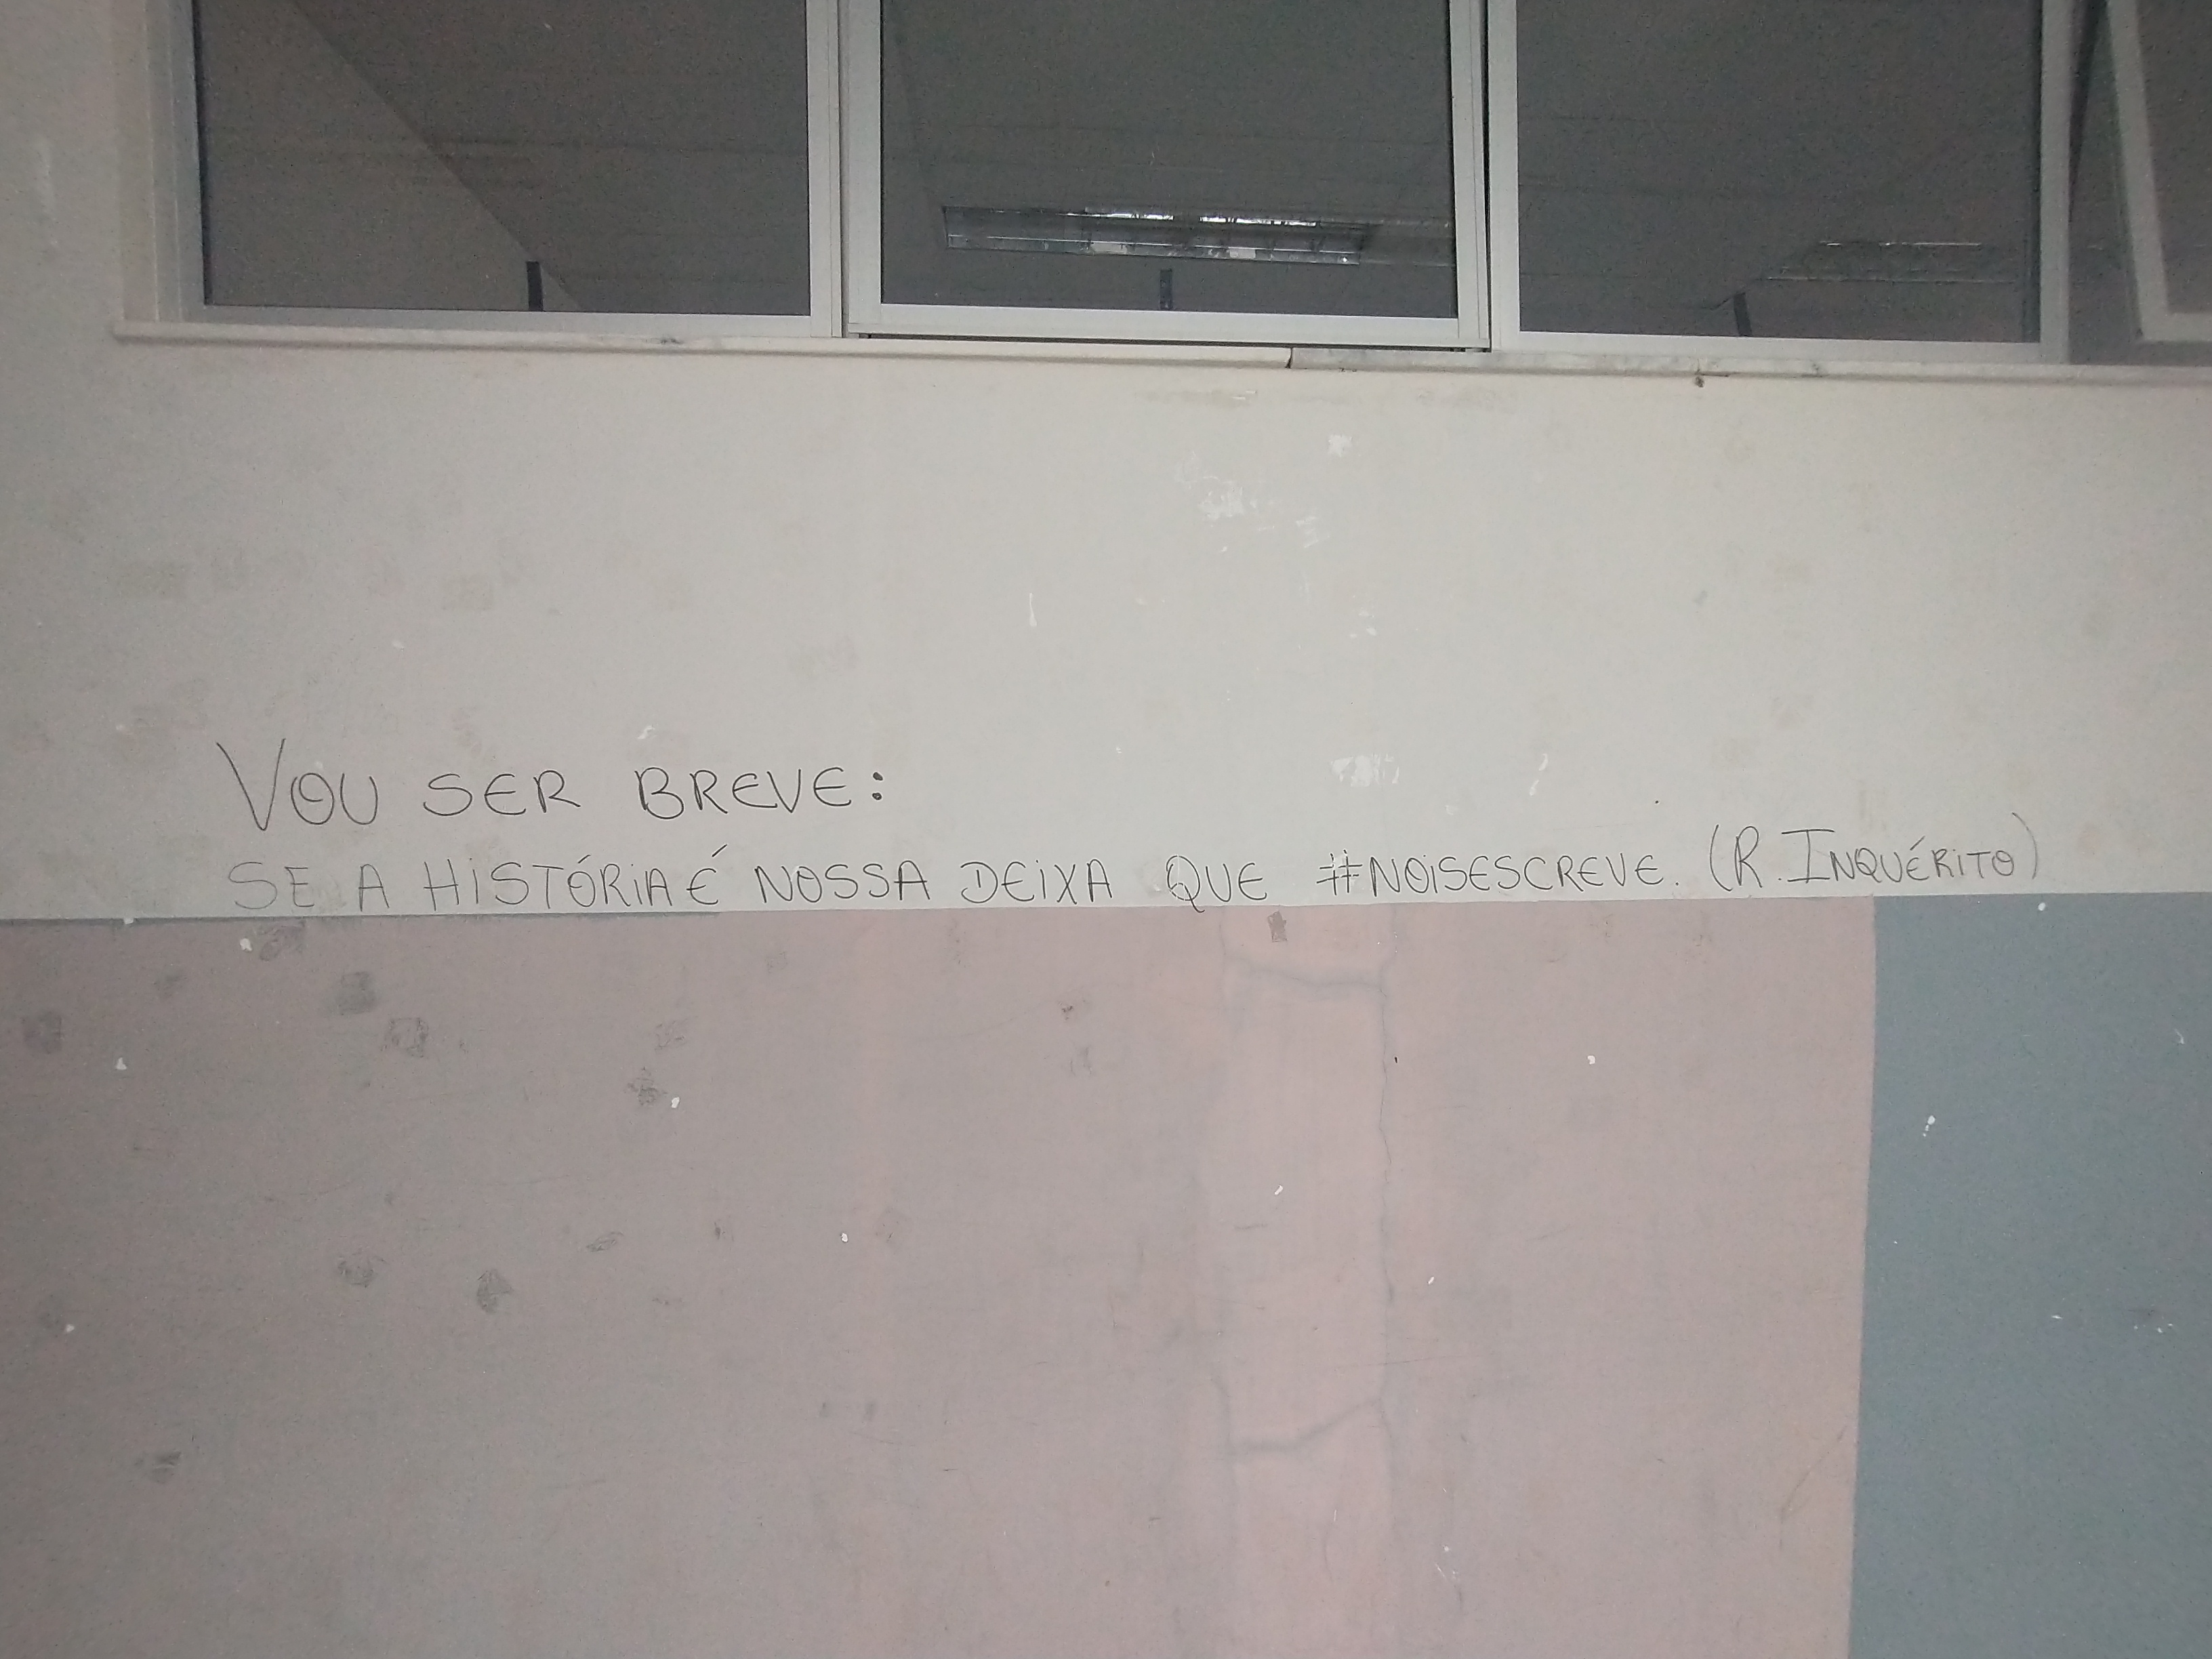 VOU SER BREVE:
SE A HISTÓRIA É NOSSA DEIXA QUE #NOISESCREVE. (R. INQUÉRITO)